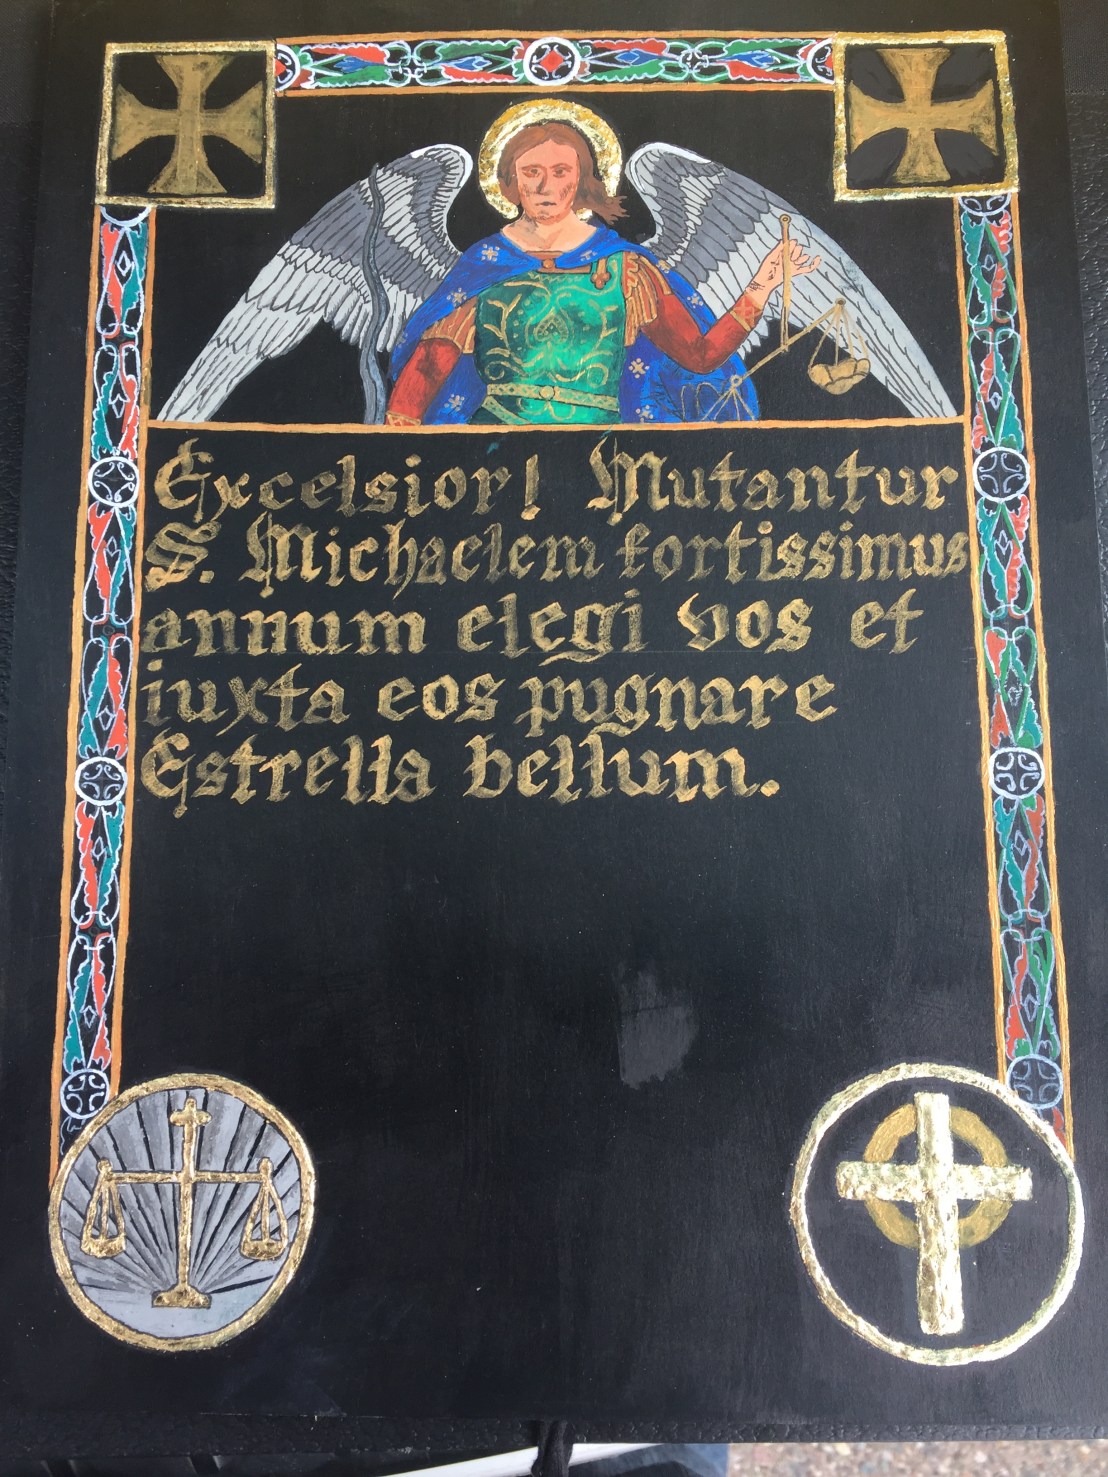 Excelsior! Mutantur
S. Michaelem fortissimus
annum elegi vos et
iuxta eos pugnare
Estrella bellum.